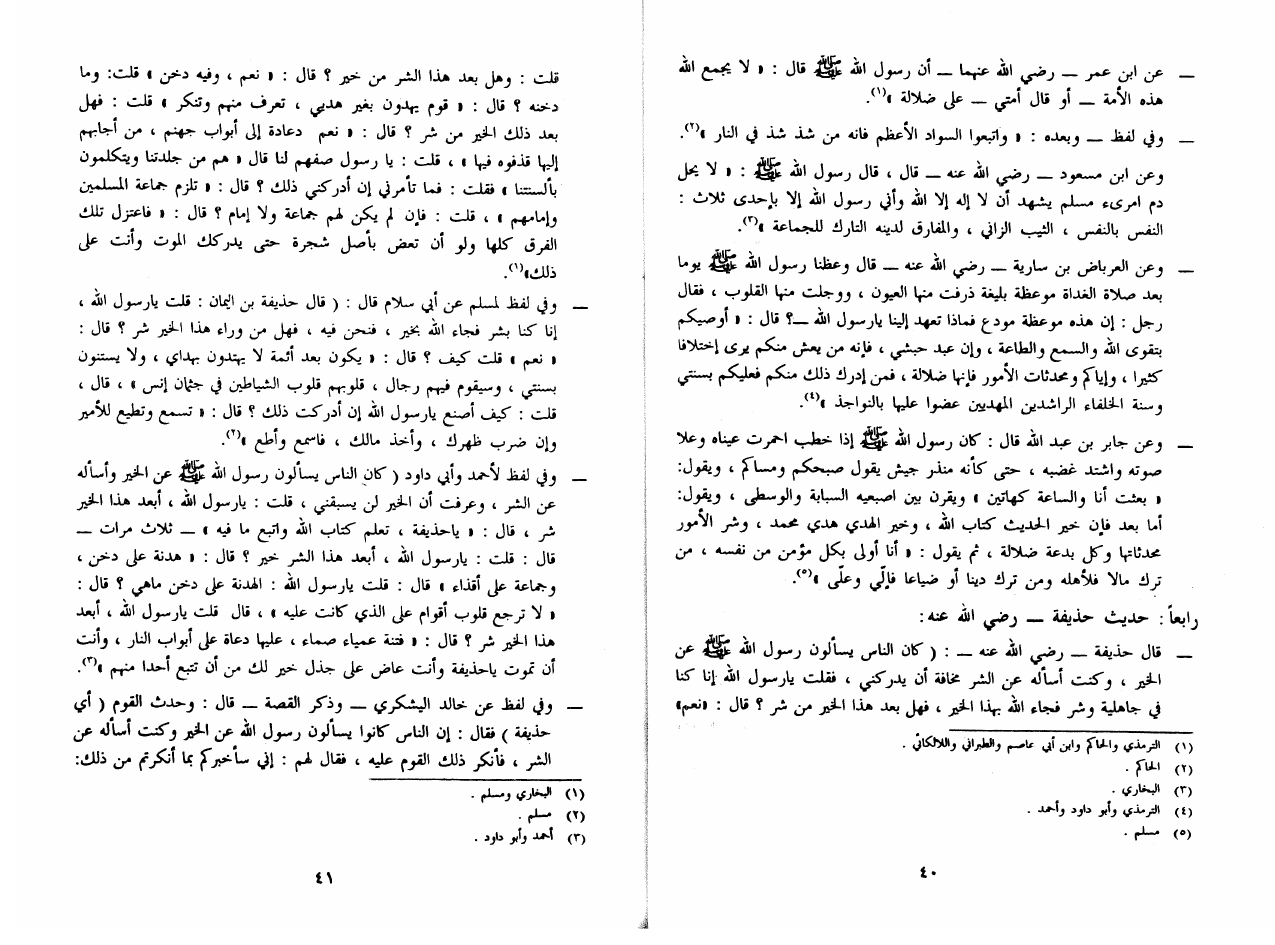 — عن ابن عمر — رضي الله عنهما — أن رسول الله ﷺ قال : « لا يجمع الله
هذه الأمة — أو قال أمتي — على ضلالة »(١).
— وفي لفظ — وبعده : « واتبعوا السواد الأعظم فانه من شذ شذ في النار »(٢).
وعن ابن مسعود — رضي الله عنه — قال ، قال رسول الله ﷺ : « لا يحل
دم امرىء مسلم يشهد أن لا إله إلا الله وأني رسول الله إلا بإحدى ثلاث :
النفس بالنفس ، الثيب الزاني ، والمفارق لدينه التارك للجماعة »(٣).
— وعن العرباض بن سارية — رضي الله عنه — قال وعظنا رسول الله ﷺ يوما
بعد صلاة الغداة موعظة بليغة ذرفت منها العيون ، ووجلت منها القلوب ، فقال
رجل : إن هذه موعظة مودع فماذا تعهد إلينا يارسول الله —؟ قال : « أوصيكم
بتقوى الله والسمع والطاعة ، وإن عبد حبشي ، فإنه من يعش منكم يرى إختلافا
كثيرا ، وإياكم ومحدثات الأمور فإنها ضلالة ، فمن إدرك ذلك منكم فعليكم بسنتي
وسنة الخلفاء الراشدين المهديين عضوا عليها بالنواجذ »(٤).
— وعن جابر بن عبد الله قال : كان رسول الله ﷺ إذا خطب احمرت عيناه وعلا
صوته واشتد غضبه ، حتى كأنه منذر جيش يقول صبحكم ومساكم ، ويقول:
« بعثت أنا والساعة كهاتين » ويقرن بين اصبعيه السبابة والوسطى ، ويقول:
أما بعد فإن خير الحديث كتاب الله ، وخير الهدي هدي محمد ، وشر الأمور
محدثاتها وكل بدعة ضلالة ، ثم يقول : « أنا أولى بكل مؤمن من نفسه ، من
ترك مالا فلأهله ومن ترك دينا أو ضياعا فإلّي وعلّى »(٥).
رابعاً : حديث حذيفة — رضي الله عنه :
— قال حذيفة — رضي الله عنه — : ( كان الناس يسألون رسول الله ﷺ عن
الخير ، وكنت أسأله عن الشر مخافة أن يدركني ، فقلت يارسول الله إنا كنا
في جاهلية وشر فجاء الله بهذا الخير ، فهل بعد هذا الخير من شر ؟ قال : «نعم»
(١) الترمذي والحاكم وابن أبي عاصم والطبراني واللالكائي .
(٢) الحاكم .
(٣) البخاري .
(٤) الترمذي وأبو داود وأحمد .
(٥) مسلم .
٤٠
قلت : وهل بعد هذا الشر من خير ؟ قال : « نعم ، وفيه دخن » قلت: وما
دخنه ؟ قال : « قوم يهدون بغير هديي ، تعرف منهم وتنكر » قلت : فهل
بعد ذلك الخير من شر ؟ قال : « نعم دعادة إلى أبواب جهنم ، من أجابهم
إليها قذفوه فيها » ، قلت : يا رسول صفهم لنا قال « هم من جلدتنا ويتكلمون
بألسنتنا » فقلت : فما تأمرني إن أدركني ذلك ؟ قال : « تلزم جماعة المسلمين
وإمامهم » ، قلت : فإن لم يكن لهم جماعة ولا إمام ؟ قال : « فاعتزل تلك
الفرق كلها ولو أن تعض بأصل شجرة حتى يدركك الموت وأنت على
ذلك»(١).
— وفي لفظ لمسلم عن أبي سلام قال : ( قال حذيفة بن اليمان : قلت يارسول الله ،
إنا كنا بشر فجاء الله بخير ، فنحن فيه ، فهل من وراء هذا الخير شر ؟ قال :
« نعم » قلت كيف ؟ قال : « يكون بعد أئمة لا يهتدون بهداي ، ولا يستنون
بسنتي ، وسيقوم فيهم رجال ، قلوبهم قلوب الشياطين في جثمان إنس » ، قال ،
قلت : كيف أصنع يارسول الله إن أدركت ذلك ؟ قال : « تسمع وتطيع للأمير
وإن ضرب ظهرك ، وأخذ مالك ، فاسمع وأطع »(٢).
— وفي لفظ لأحمد وأبي داود ( كان الناس يسألون رسول الله ﷺ عن الخير وأسأله
عن الشر ، وعرفت أن الخير لن يسبقني ، قلت : يارسول الله ، أبعد هذا الخير
شر ، قال : « ياحذيفة ، تعلم كتاب الله واتبع ما فيه » — ثلاث مرات —
قال : قلت : يارسول الله ، أبعد هذا الشر خير ؟ قال : « هدنة على دخن ،
وجماعة على أقذاء » قال : قلت يارسول الله : الهدنة على دخن ماهي ؟ قال :
« لا ترجع قلوب أقوام على الذي كانت عليه » ، قال قلت يارسول الله ، أبعد
هذا الخير شر ؟ قال : « فتنة عمياء صماء ، عليها دعاة على أبواب النار ، وأنت
أن تموت ياحذيفة وأنت عاض على جذل خير لك من أن تتبع أحدا منهم »(٣).
— وفي لفظ عن خالد اليشكري — وذكر القصة — قال : وحدث القوم ( أي
حذيفة ) فقال : إن الناس كانوا يسألون رسول الله عن الخير وكنت أسأله عن
الشر ، فأنكر ذلك القوم عليه ، فقال لهم : إني سأخبركم بما أنكرتم من ذلك:
(١) البخاري ومسلم .
(٢) مسلم .
(٣) أحمد وأبو داود .
٤١